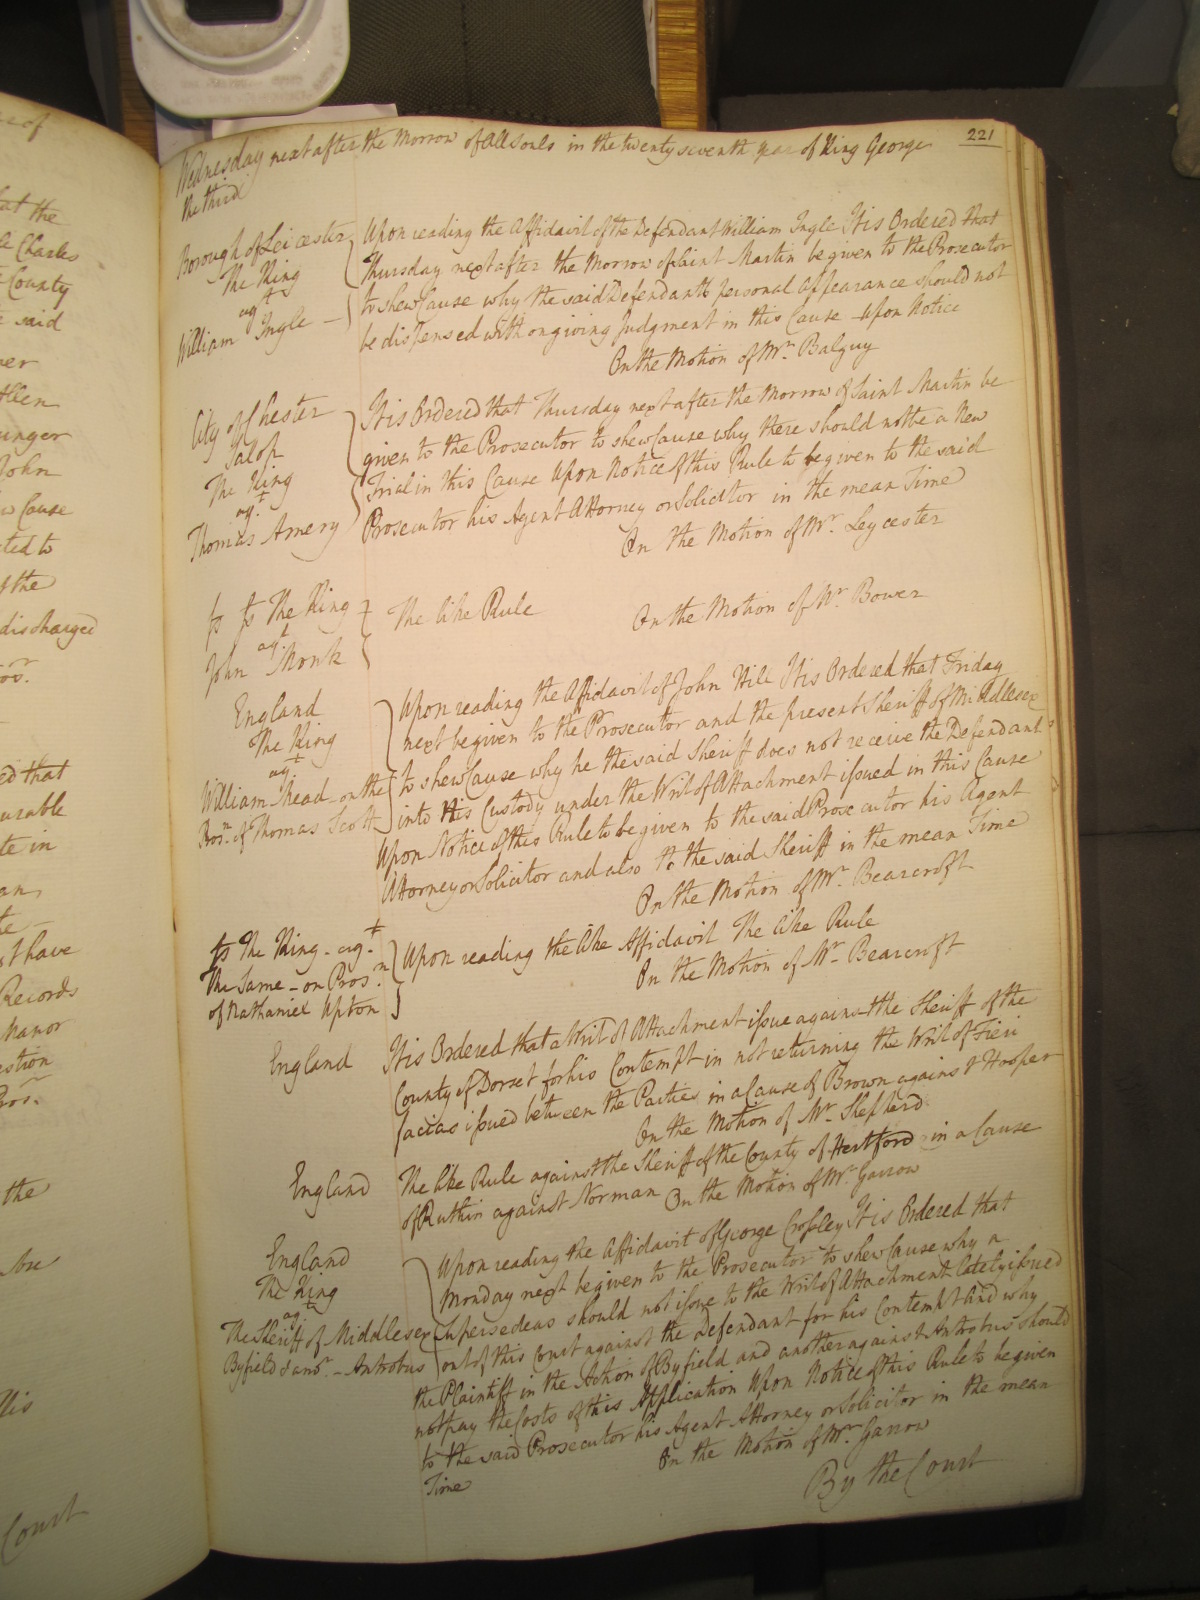 221
Wednesday next after the Morrow of All Souls in the twenty seventh year of King George
the third
Borough of Leicester
The King
agt
William Ingle
Upon reading the Affidavit of the Defendant William Ingle It is Ordered that
Thursday next after the Morrow of Saint Martin be given to the Prosecutor
to shew Cause why the said Defendants personal Appearance should not
be dispensed with on giving Judgment in this Cause upon Notice
On the Motion of Mr. Balguy
City of Chester
Salop
The King
agt
Thomas Amery
It is Ordered that Thursday next after the Morrow of Saint Martin be
given to the Prosecutor to shew Cause why there should not be a New
Trial in this Cause Upon Notice of this Rule to be given to the said
Prosecutor his Agent Attorney or Solicitor in the mean Time
On the Motion of Mr. Leycester
The King
agt
John Monk
The like Rule
On the Motion of Mr. Bower
England
The King
agt
William Mead on the
Prosn. of Thomas Scott
Upon reading the Affidavit of John Hill It is Ordered that Friday
next be given to the Prosecutor and the present Sheriff of Middlesex
to shew Cause why he the said Sheriff does not receive the Defendant
into His Custody under the Writ of Attachment issued in this Cause
Upon Notice of this Rule to be given to the said Prosecutor his Agent
Attorney or Solicitor and also to the said Sheriff in the mean Time
On the Motion of Mr. Bearcroft
The King agt
The Same on Prosn.
of Nathaniel Upton
Upon reading the like Affidavit The like Rule
On the Motion of Mr. Bearcroft
England
It is Ordered that a Writ of Attachment issue against the Sheriff of the
County of Dorset for his Contempt in not returning the Writ of Fieri
facias issued between the Parties in a Cause of Brown against Hooper
On the Motion of Mr. Shepherd
England
The like Rule against the Sheriff of the County of Hertford in a Cause
of Ruthin against Norman On the Motion of Mr. Garrow
England
The King
agt
The Sheriff of Middlesex
Byfield & anor. - Antrobus
Upon reading the Affidavit of George Crossley It is Ordered that
Monday next be given to the Prosecutor to shew Cause why a
Supersedeas should not issue to the Writ of Attachment lately issued
out of this Court against the Defendant for his Contempt And why
the Plaintiff in the Action of Byfield and another against Antrobus should
not pay the Costs of this Application Upon Notice of this Rule to be given
to the said Prosecutor his Agent Attorney or Solicitor in the mean
Time
On the Motion of Mr. Garrow
By the Court
at the
Charles
County
said
Allen
John
Cause
ted to
of the
discharged
ed that
te in
have
Records
Manor
the
Court